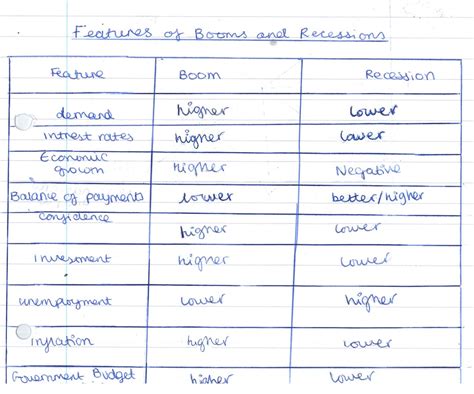 Features of Booms and Recessions
Feature Boom Recession
demand higher lower
intrest rates higher lower
Economic growth higher Negative
Balance of payments lower better/higher
confidence higher lower
investment higher lower
unemployment lower higher
inflation higher lower
Government Budget higher lower